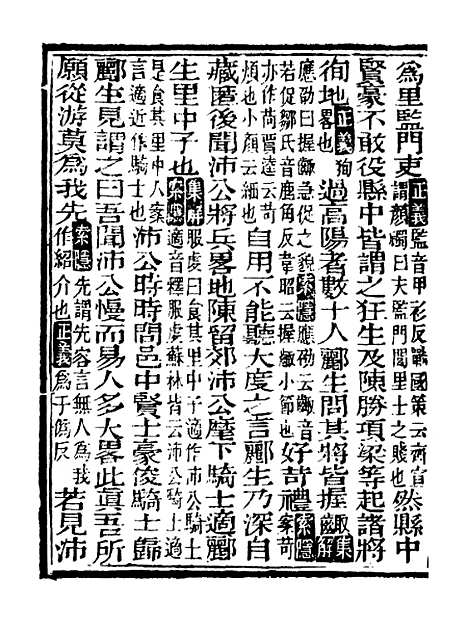 爲里監門吏正義監音甲衫反戰國策云齊宣謂顏斶曰夫監門閭里士之賤也然縣中
賢豪不敢役縣中皆謂之狂生及陳勝項梁等起諸將
徇地正義徇畧也過高陽者數十人酈生問其將皆握齱集解
應劭曰握齱急促之貌索隱應劭云齱音若促鄒氏音鹿角反韋昭云握齱小節也好苛禮索隱案苛
亦作荷賈逵云苛煩也小顏云細也自用不能聽大度之言酈生乃深自
藏匿後聞沛公將兵畧地陳留郊沛公麾下騎士適酈
生里中子也集解服虔曰食其里中子適作沛公騎士索隱適音釋服虔蘇林皆云沛公騎士適
是食其里中人案言適近作騎士也沛公時時問邑中賢士豪俊騎士歸
酈生見謂之曰吾聞沛公慢而易人多大畧此眞吾所
願從游莫爲我先索隱先謂先容言無人爲我作紹介也正義爲于僞反若見沛